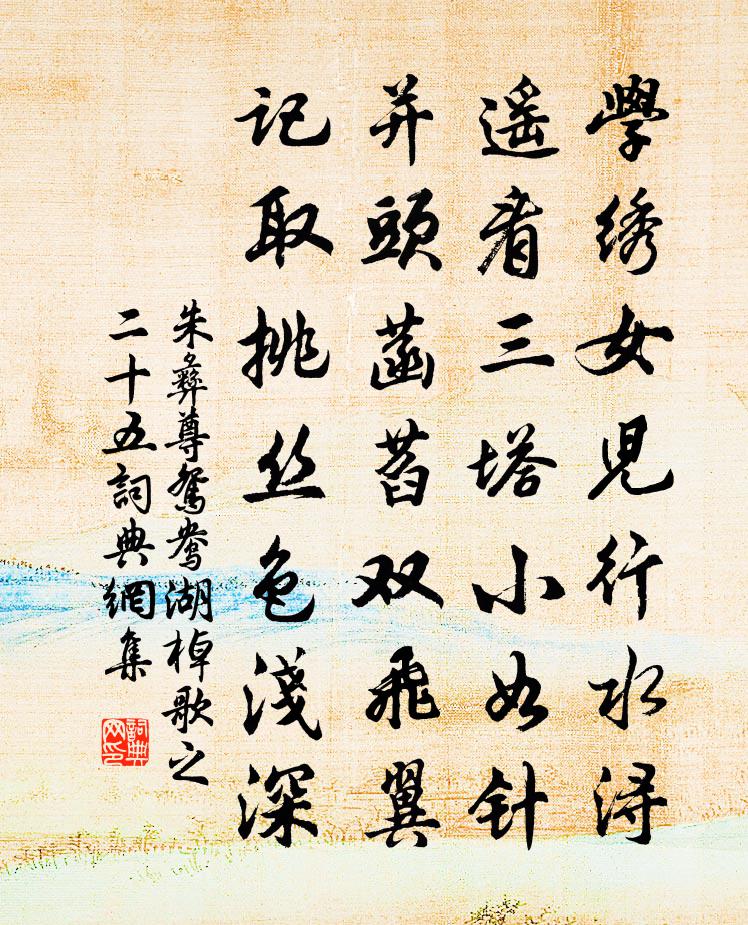 學绣女児行水浔
遥看三塔小如针
并頭菡萏双飛翼
記取挑丝色淺深
朱彝尊鴛鴦湖棹歌之
二十五詞典網集
詞典网印